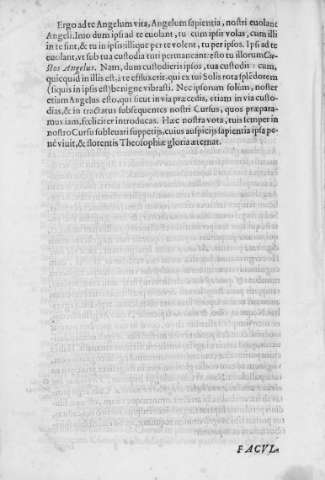 Ergo ad te Angelum vita, Angelum sapientia, nostri euolant
Angeli. Imo dum ipsi ad te euolant, tu cum ipsis volas, cum illi
in te sint, & tu in ipsis: illique per te volent, tu per ipsos. Ipsi ad te
euolant, vt sub tua custodia tuti permaneant: esto tu illorum Cu-
stos Angelus. Nam, dum custodieris ipsos, tua custodis: cum,
quicquid in illis est, à te effluxerit, qui ex tui Solis rota splẽdorem
(siquis in ipsis est) benigne vibrasti. Nec ipsorum solùm, noster
etiam Angelus esto, qui sicut in via præcedis, etiam in via custo-
dias, & in tractatus subsequentes nostri Cursus, quos præpara-
mus iam, fœliciter introducas. Hæc nostra vota, tuis semper in
nostro Cursu subleuari suppetijs, cuius auspicijs sapientia ipsa pe-
nè viuit, & florentis Theosophiæ gloria æternat.
FACVL-